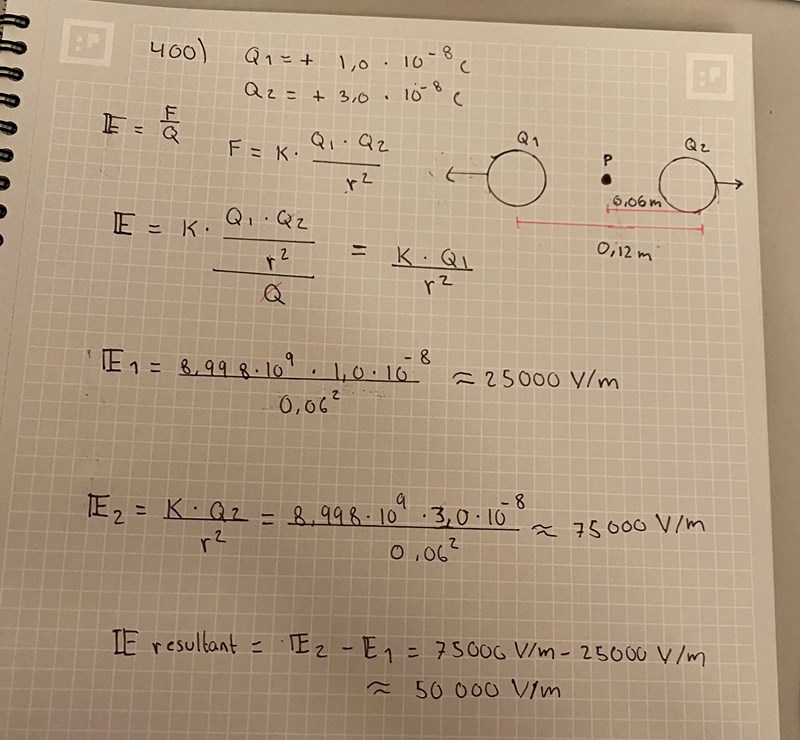 400) Q1 = + 1,0 · 10^-8 C
Q2 = + 3,0 · 10^-8 C
E = F/Q
F = K · (Q1 · Q2)/r^2
Q1
P
Q2
0,06m
0,12m
E = K · ((Q1 · Q2)/r^2)/Q = (K · Q1)/r^2
E1 = (8,998 · 10^9 · 1,0 · 10^-8)/0,06^2 ≈ 25000 V/m
E2 = (K · Q2)/r^2 = (8,998 · 10^9 · 3,0 · 10^-8)/0,06^2 ≈ 75000 V/m
E resultant = E2 - E1 = 75000 V/m - 25000 V/m
≈ 50 000 V/m